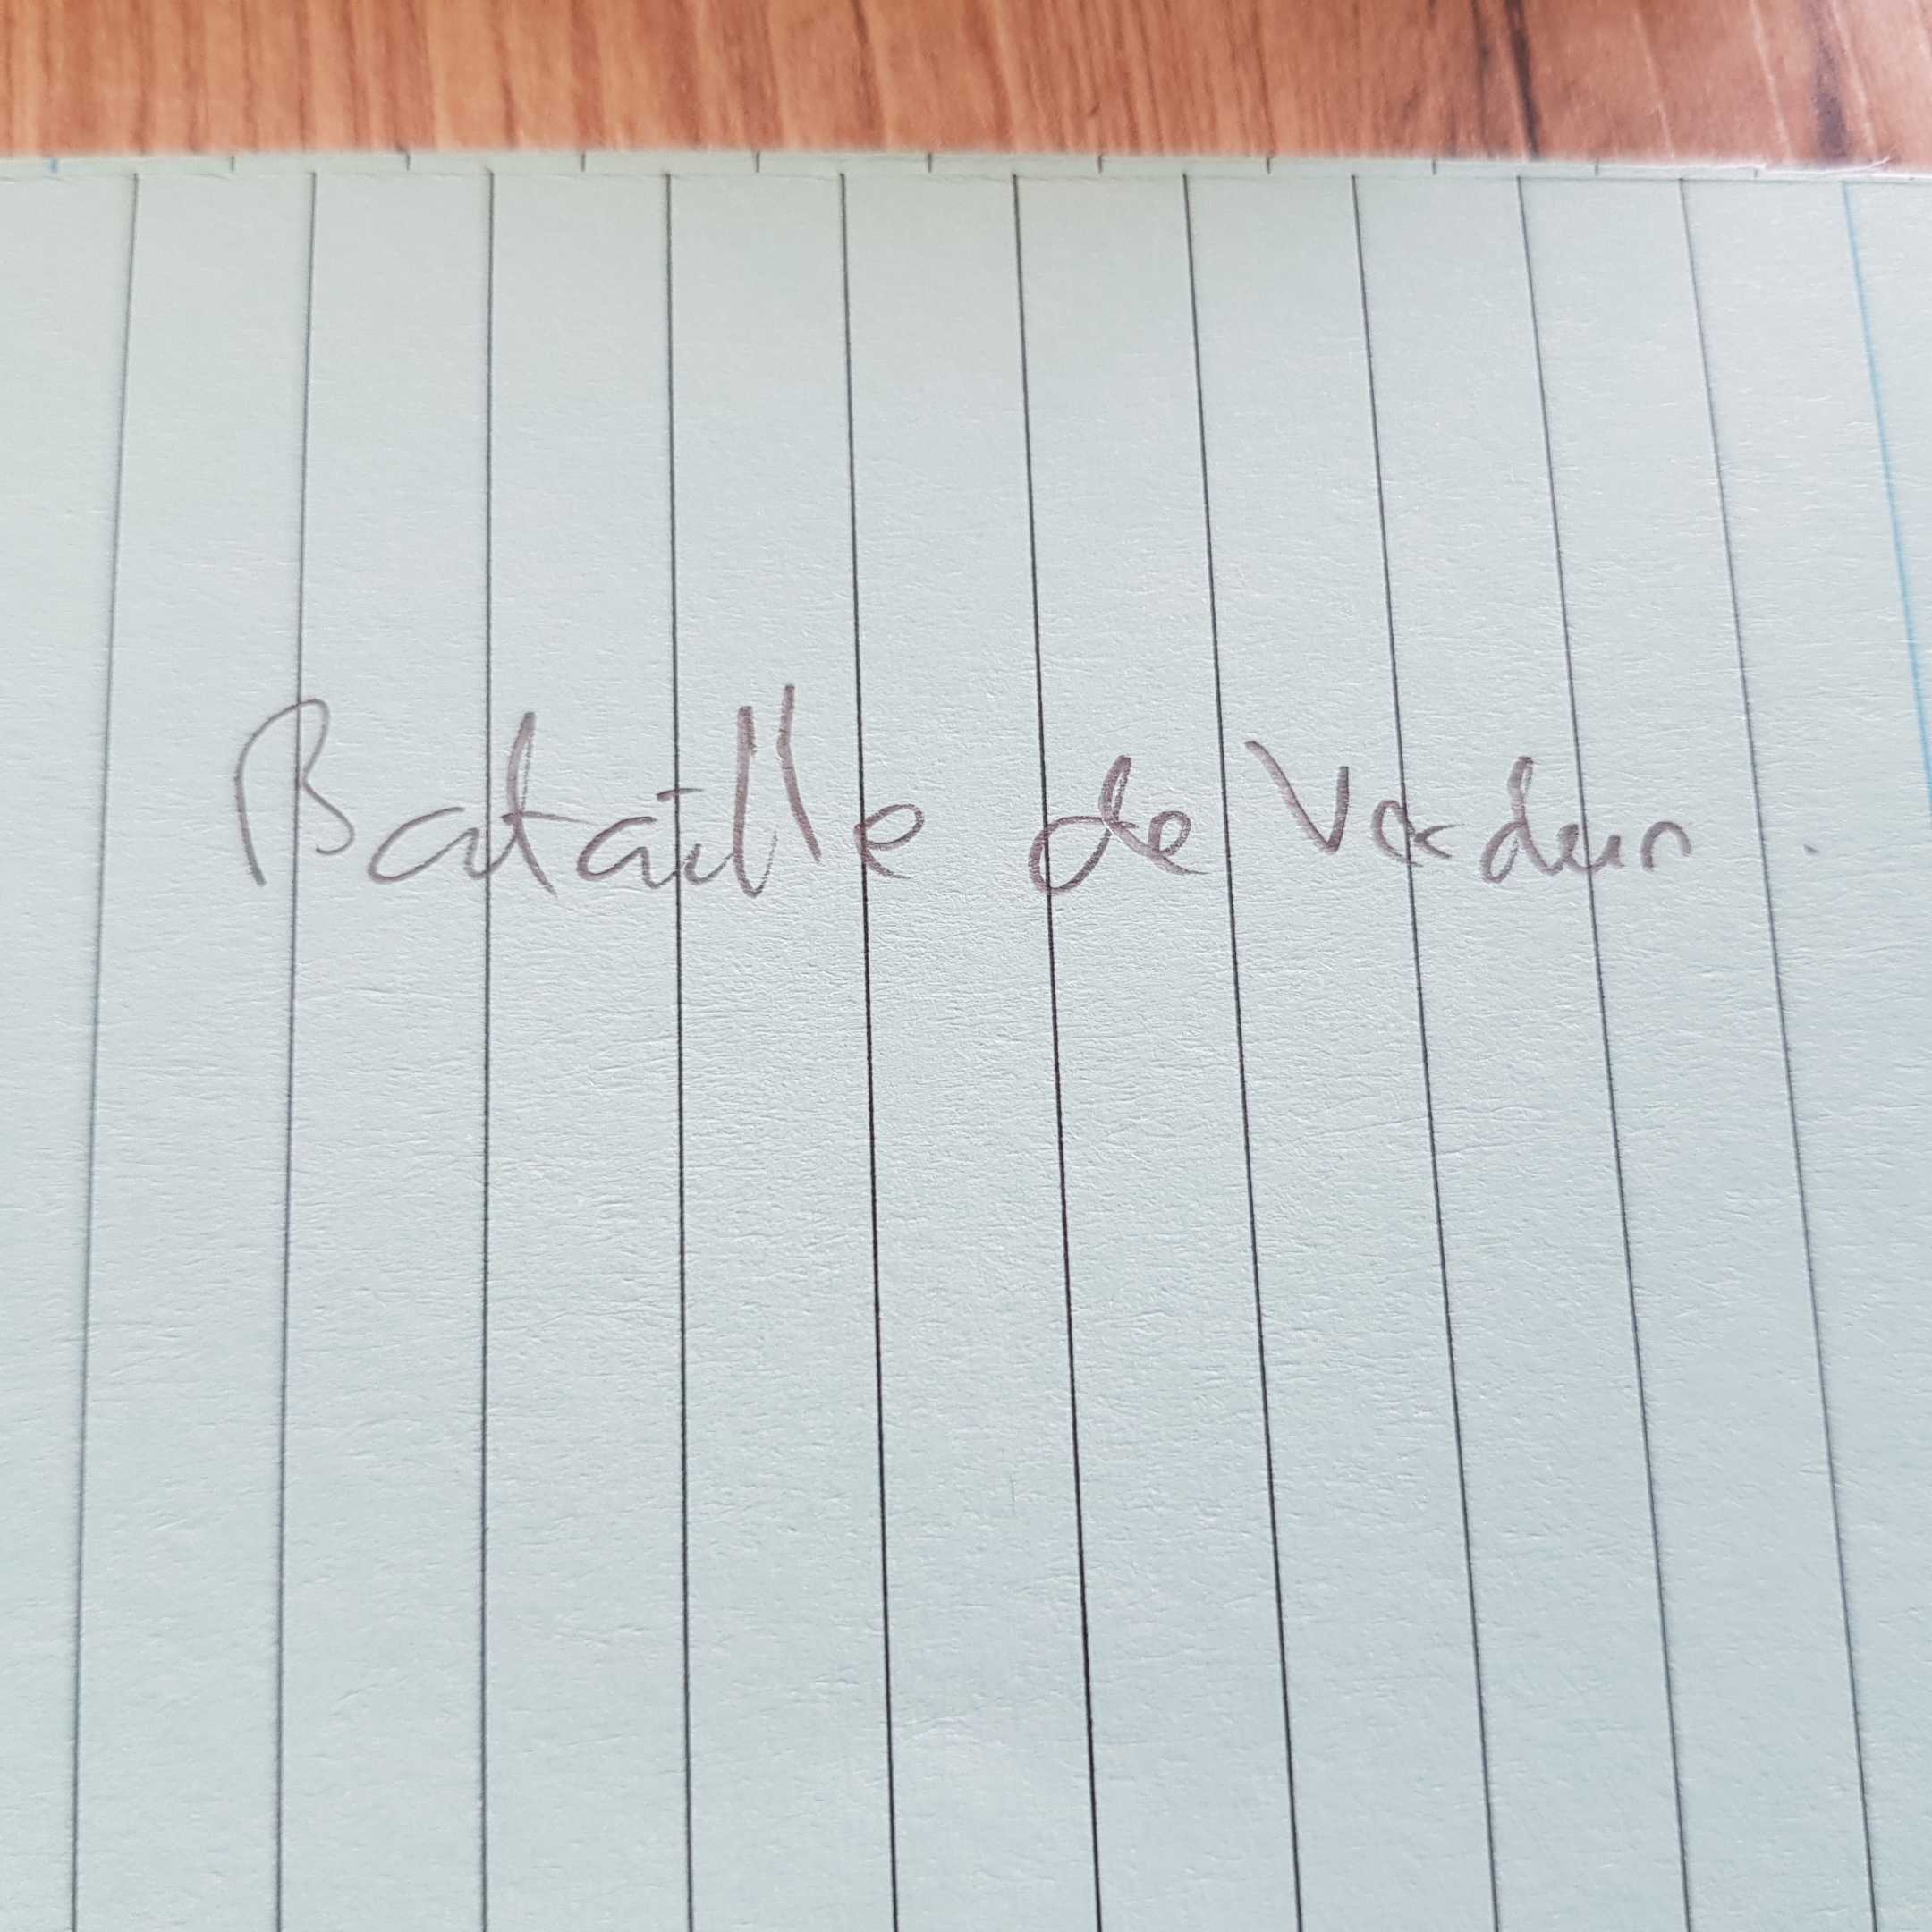 Bataille de Verdun .